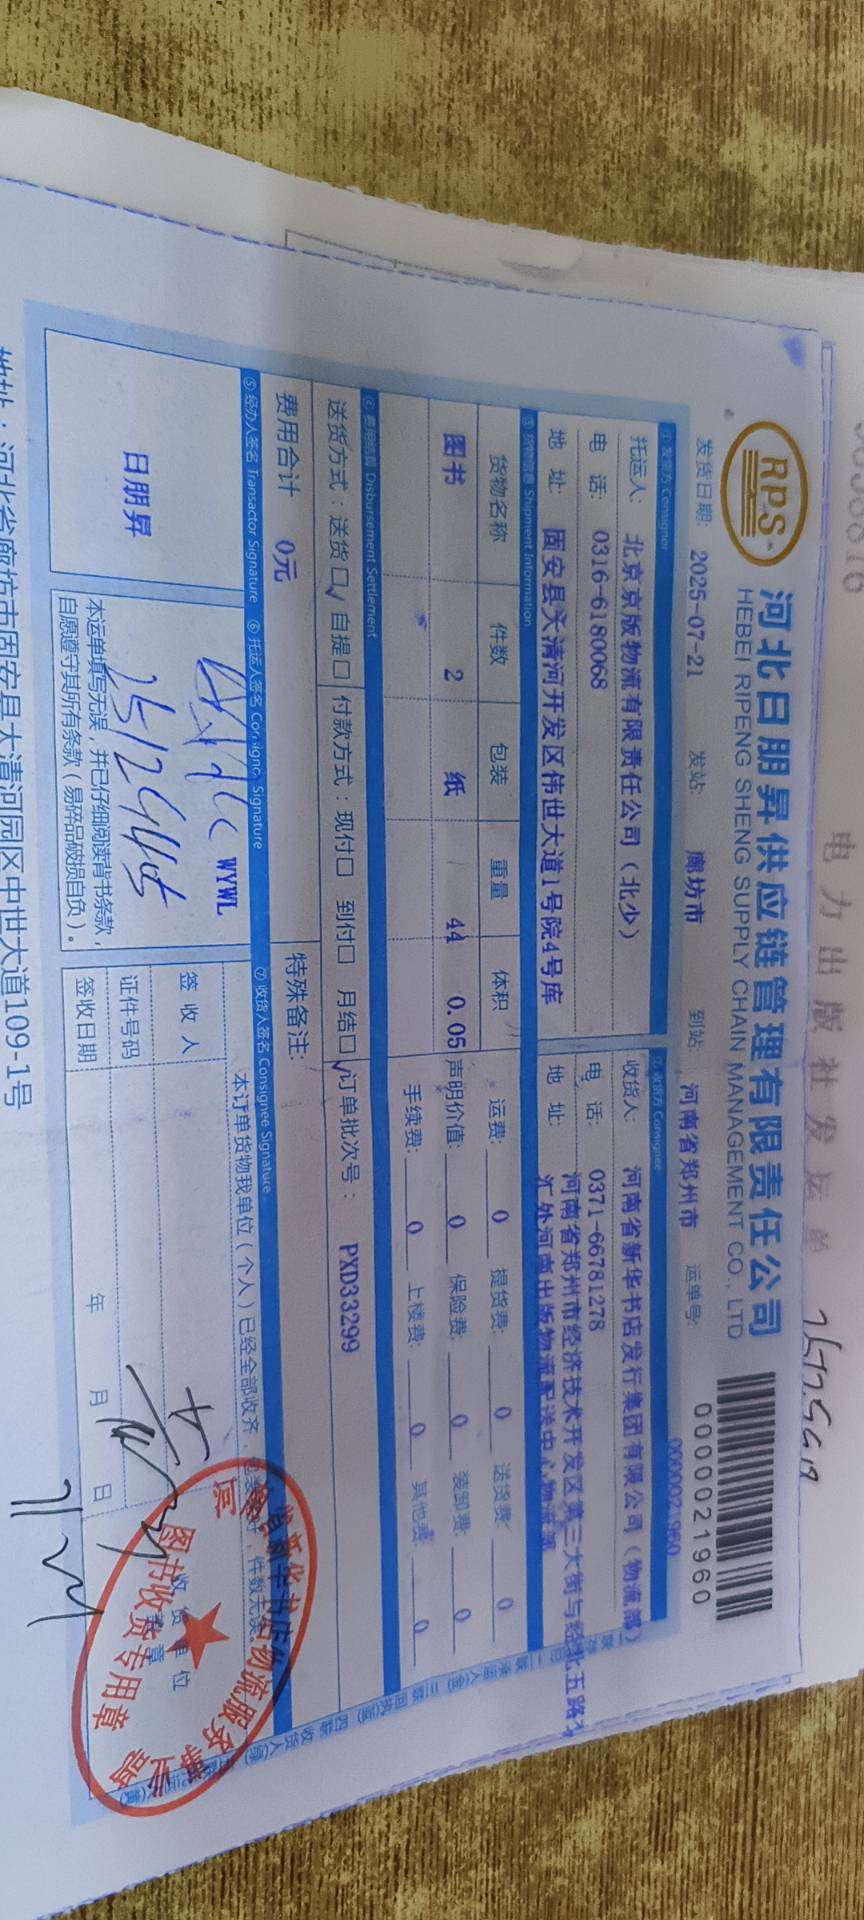 电力出版社发运单
RPS
河北日朋昇供应链管理有限责任公司
HEBEI RIPENG SHENG SUPPLY CHAIN MANAGEMENT CO., LTD
0000021960
0000021960
发货日期: 2025-07-21 发站: 廊坊市 到站: 河南省郑州市 运单号:
① 发货方 Consignor
② 收货方 Consignee
托运人: 北京京版物流有限责任公司（北少）
收货人: 河南省新华书店发行集团有限公司（物流部）
电 话: 0316-6180068
电 话: 0371-66781278
地 址: 固安县大清河开发区伟世大道1号院4号库
地 址: 河南省郑州市经济技术开发区第三大街与经北五路
汇外河南出版物流配送中心物流部
③ 货物信息 Shipment Information
货物名称 件数 包装 重量 体积
运费: 0 提货费: 0 送货费: 0
图书 2 纸 44 0.05
声明价值: 0 保险费: 0 装卸费: 0
手续费: 0 上楼费: 0 其他费: 0
④ 费用结算 Disbursement Settlement
送货方式：送货□√ 自提□ 付款方式：现付□ 到付□ 月结□√ 订单批次号： PXD33299
费用合计 0元
特殊备注:
⑤ 经办人签名 Transactor Signature
⑥ 托运人签名 Consignor Signature
⑦ 收货人签名 Consignee Signature
日朋昇
WYWL
本运单填写无误，并已仔细阅读背书条款，
自愿遵守其所有条款（易碎品破损自负）。
本订单货物我单位（个人）已经全部收齐，
件数无误
签 收 人
证件号码
签收日期
年 月 日
收货单位
盖章
新华书店物流服务
图书收货专用章
地址：河北省廊坊市固安县大清河园区中世大道109-1号